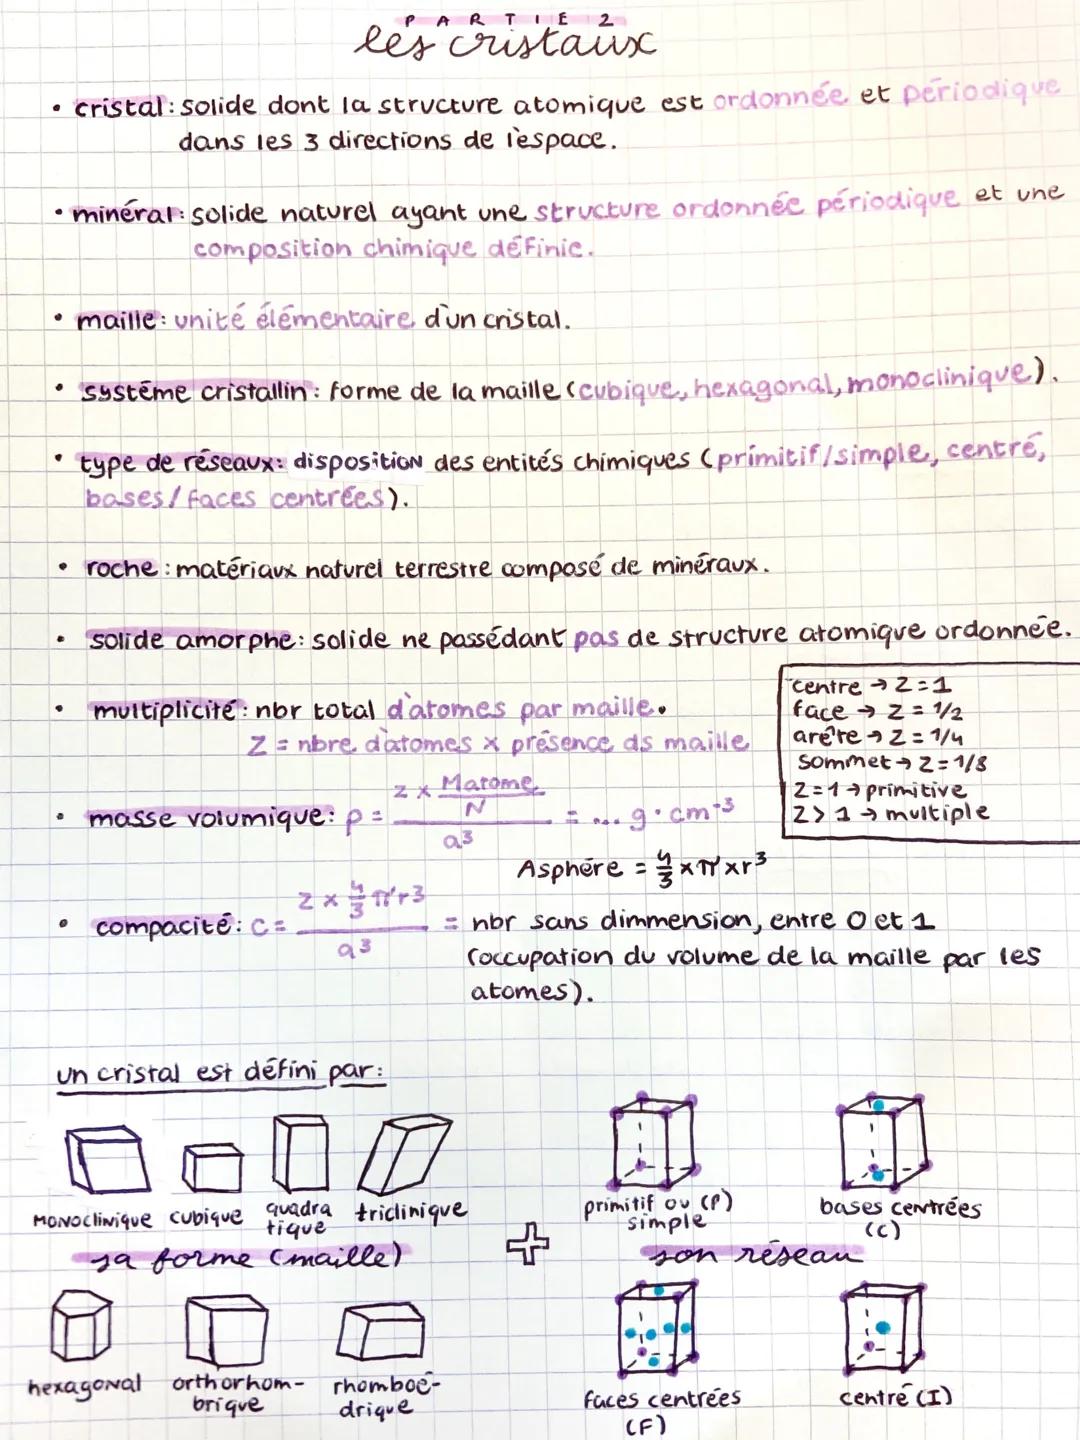 PARTIE 2
les cristaux
• cristal : solide dont la structure atomique est ordonnée et périodique
dans les 3 directions de l'espace.
• minéral : solide naturel ayant une structure ordonnée périodique et une
composition chimique définie.
• maille : unité élémentaire d'un cristal.
• système cristallin : forme de la maille (cubique, hexagonal, monoclinique).
• type de réseaux : disposition des entités chimiques (primitif/simple, centré,
bases/faces centrées).
• roche : matériaux naturel terrestre composé de minéraux.
• solide amorphe : solide ne possédant pas de structure atomique ordonnée.
• multiplicité : nbr total d'atomes par maille.
Z = nbre d'atomes x présence ds maille
centre → Z = 1
face → Z = 1/2
arête → Z = 1/4
sommet → Z = 1/8
Z = 1 → primitive
Z > 1 → multiple
• masse volumique : ρ = (Z x Matome/N) / a³ = ... g·cm⁻³
Asphère = 4/3 x π x r³
• compacité : C = (Z x 4/3 π r³) / a³ = nbr sans dimmension, entre 0 et 1
(occupation du volume de la maille par les
atomes).
un cristal est défini par :
monoclinique cubique quadra
tique triclinique
sa forme (maille)
hexagonal orthorhom-
brique rhomboé-
drique
+
primitif ou (P)
simple
bases centrées
(C)
son réseau
faces centrées
(F)
centré (I)